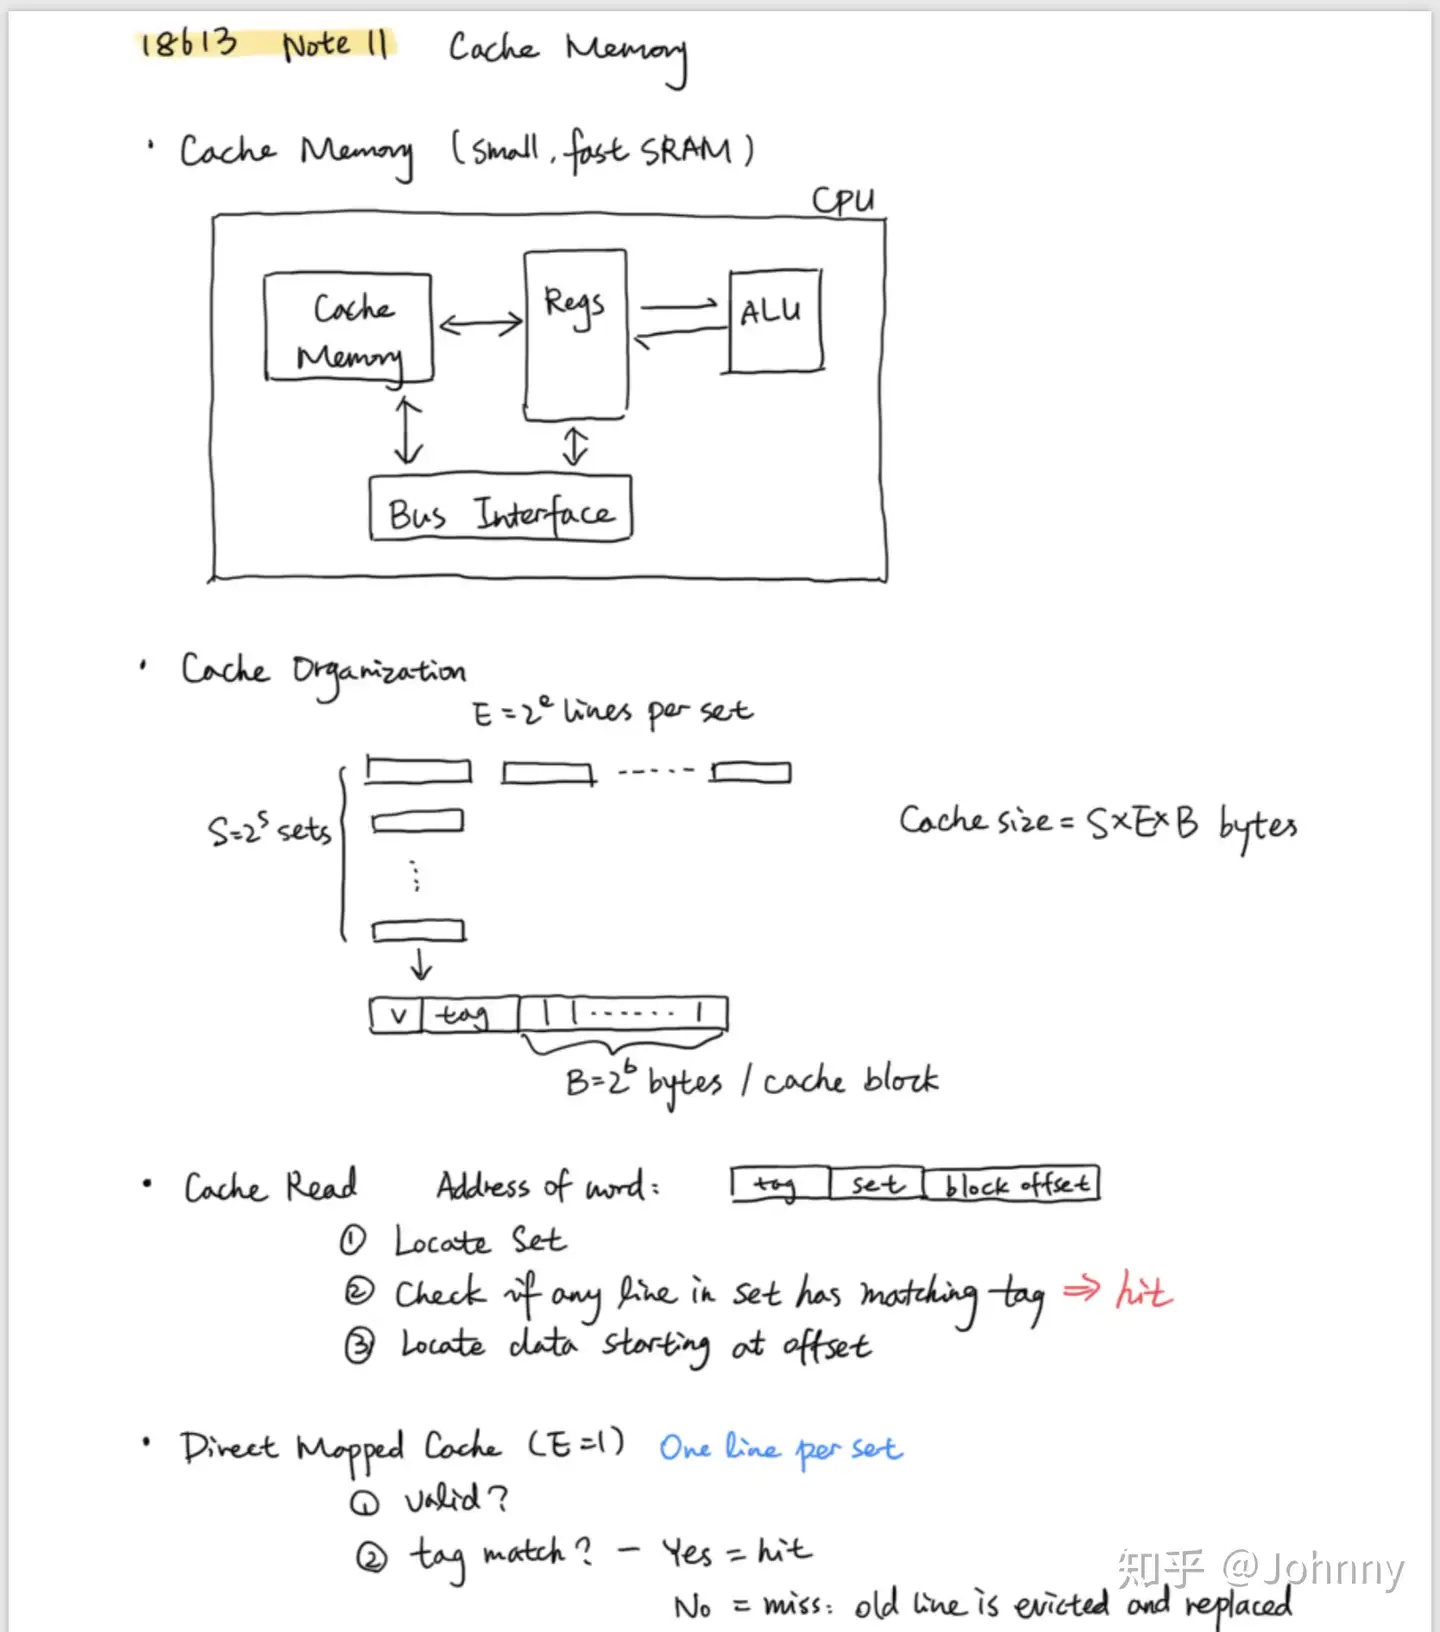 18613 Note 11 Cache Memory
· Cache Memory (small, fast SRAM)
CPU
Cache
Memory
Regs
ALU
Bus Interface
· Cache Organization
E = 2^e lines per set
S=2^s sets
Cache size = S×E×B bytes
v tag
B=2^b bytes / cache block
· Cache Read Address of word: tag set block offset
① Locate Set
② Check if any line in set has matching tag ⇒ hit
③ Locate data starting at offset
· Direct Mapped Cache (E=1) One line per set
① valid?
② tag match? - Yes = hit
No = miss: old line is evicted and replaced
知乎 @Johnny